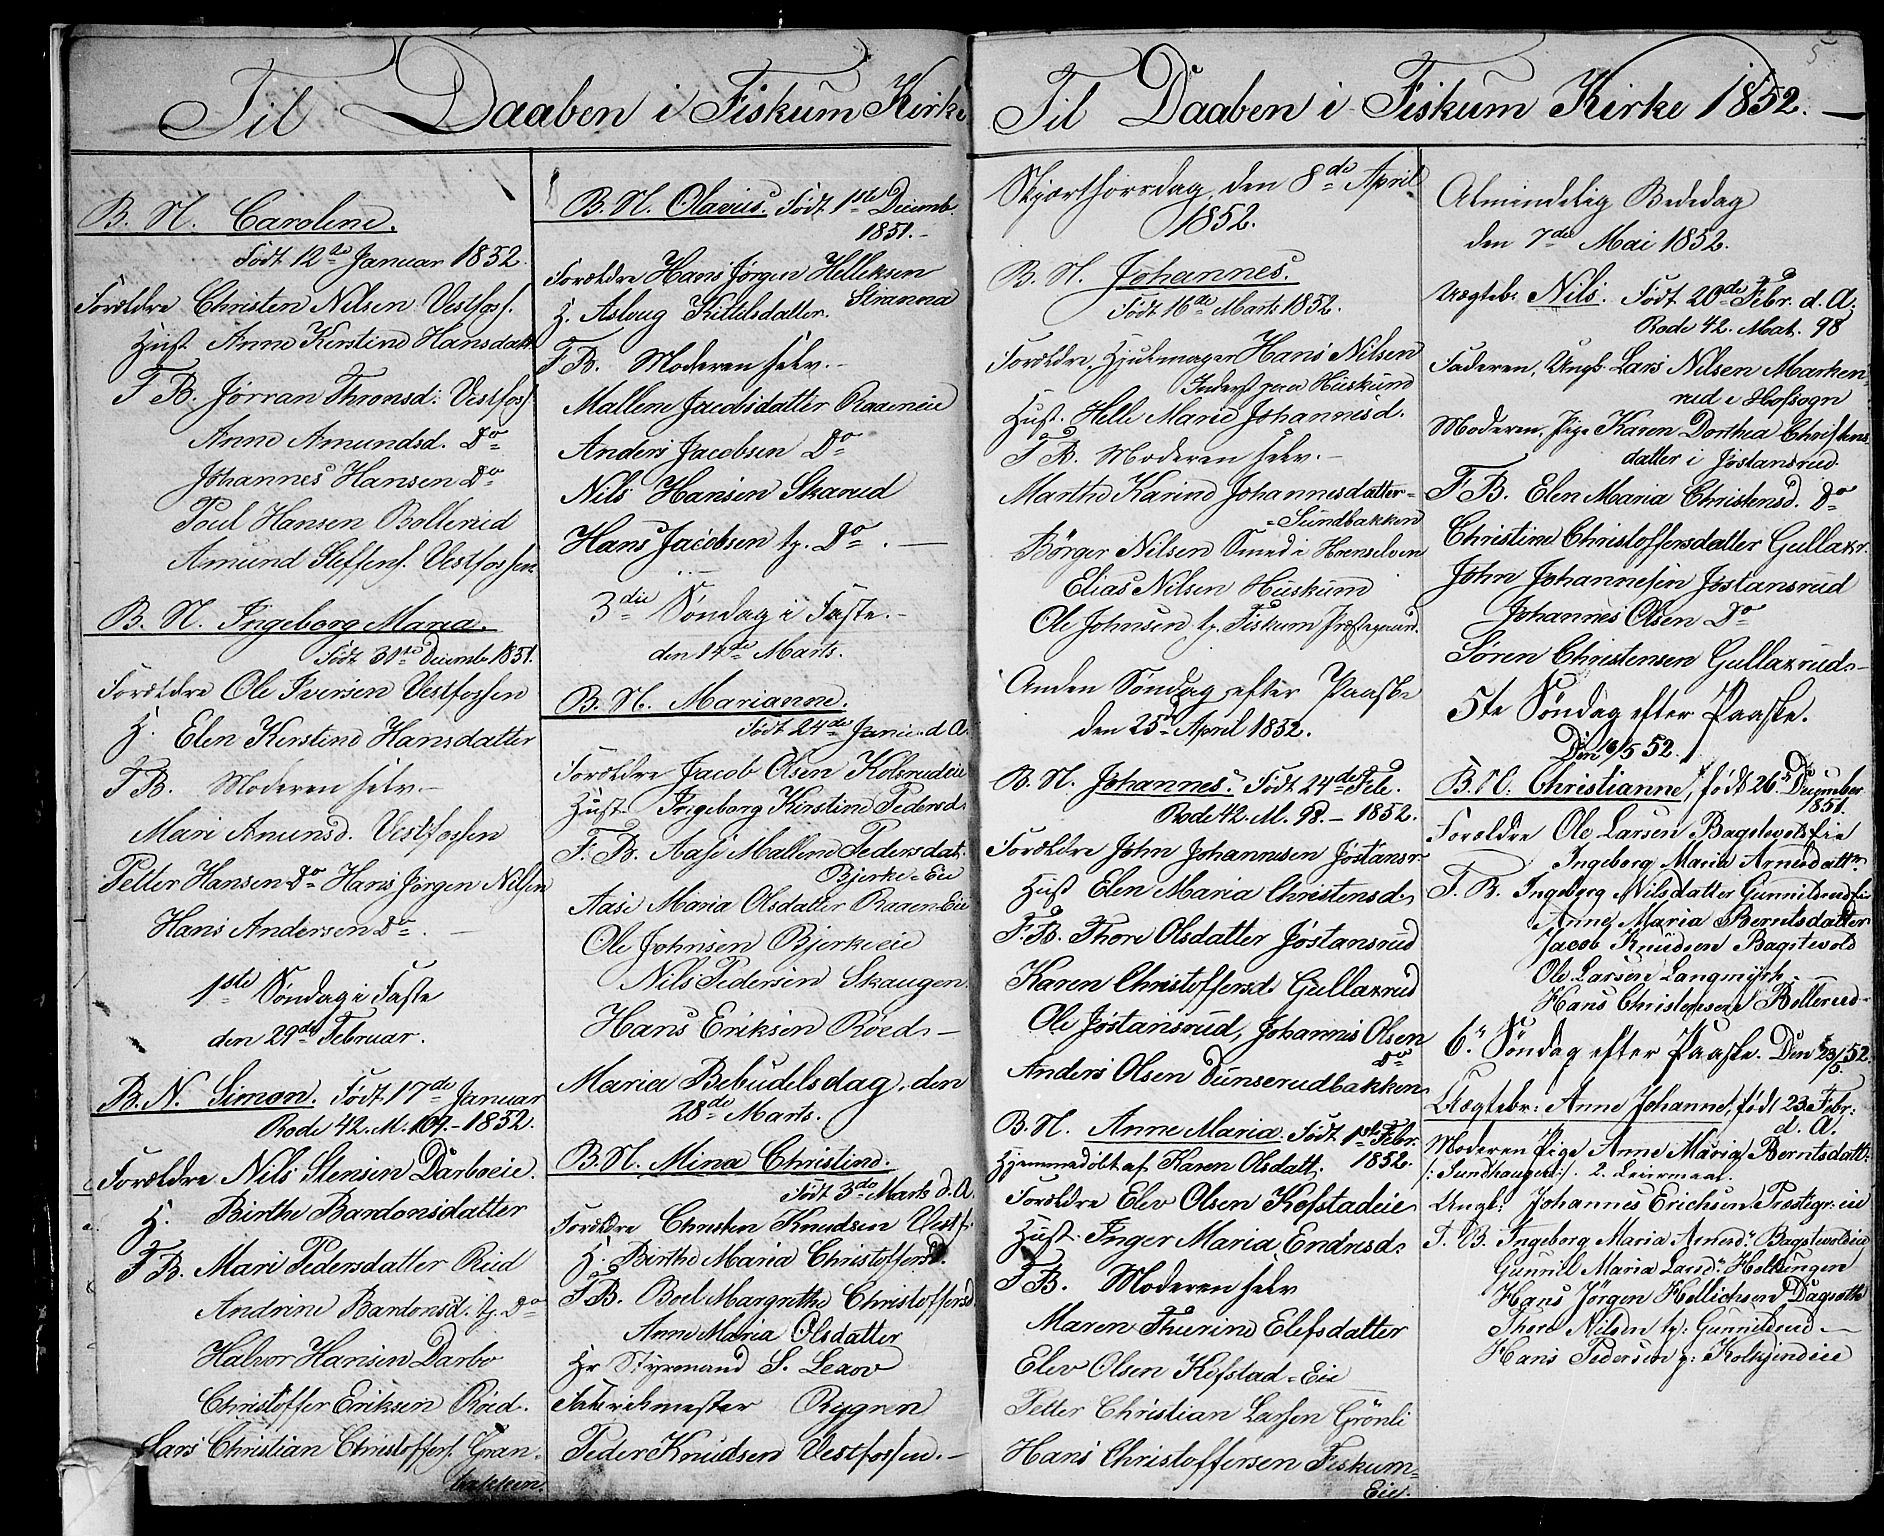 Til Daaben i Fiskum Kirke
B. N. Caroline.
Født 12te Januar 1852.
Forældre Christen Nilsen Vestfoss.
Hust. Anne Kirstine Hansdatt.
F. B. Jørran Thronsd: Vestfoss
Anne Amundsd. Do
Johannes Hansen Do
Poul Hansen Bollerud
Amund Steffens. Vestfossen
B. N. Ingeborg Maria.
Født 30te Decemb 1851.
Forældre Ole Iversen Vestfossen
H. Elen Kirstine Hansdatter
F B. Moderen selv.-
Mari Amunsd. Vestfossen
Petter Hansen Do Hans Jørgen Nilsen
Hans Andersen Do. -
1ste Søndag i Faste
den 29de Februar.
B. N. Simon. Født 17de Januar
Rode 42. M. 104. - 1852.
Forældre Nils Stensen Darboeie.
H. Birthe Bardonsdatter
F B. Mari Pedersdatter Røed
Andrine Bardonsd. tj. Do
Halvor Hansen Darbo
Christoffer Eriksen Røed.
Lars Christian Christoffers. Gran-
bakken.
B. N. Olavus. Født 1ste Decemb.
1851.-
Forældre Hans Jørgen Helleksen
Stranna
H. Asloug Kittelsdatter.
F B. Moderen selv.-
Mallene Jacobsdatter Raaeneie
Anders Jacobsen Do
Nils Hansen Skarud
Hans Jacobsen tj. Do. -
3die Søndag i Faste.-
den 14de Marts.
B. N. Marianne.
Født 24de Janu. d. A.
Forældre Jacob Olsen Kolsrudeie
Hust. Ingeborg Kirstine Pedersd.
F. B. Aase Mallene Pedersdat.
Bjerke-Eie
Aase Maria Olsdatter Raaen-Eie
Ole Johnsen Bjerkeeie
Nils Pedersen Skaugen
Hans Eriksen Røed.-
Maria Bebudelsdag, den
28de Marts.
B. N. Mina Christine.
Født 3de Marts d. A.
Forældre Christen Knudsen Vestf.
H. Birthe Maria Christoffersd.
F B. Boel Margrethe Christoffersd
Anne Maria Olsdatter
Hr Styrmand S. Leaov
Fabrikmester Rygren
Peder Knudsen Vestfossen.-
5
Til Daaben i Fiskum Kirke 1852. -
Skjærthorsdag, den 8de April
1852.
B. N. Johannes.
Født 16de Marts 1852.
Forældre, Hjulmager Hans Nilsen
Inderst paa Huskund
Hust. Helle Marie Johannesd.
F B. Moderen selv.-
Marthe Karine Johannesdatter-
-Sundbakken
Børger Nilsen Smed i Krenselven
Elias Nilsen Huskund
Ole Johnsen tj. Fiskum Præstegaard.
Anden Søndag efter Paaske
den 25de April 1852.
B. N. Johannes. Født 24de Feb.
Rode 42. M. 98. - 1852.
Forældre John Johannesen Jøstansr
Hust Elen Maria Christensd.
F. B. Thore Olsdatter Jøstansrud
Karen Christoffersd. Gullaxrud
Ole Jøstansrud, Johannes Olsen
Do
Anders Olsen Dunserudbakken
B. N. Anne Maria. Født 1ste Febr.
Hjemmedøbt af Karen Olsdatt. 1852.
Forældre Elev Olsen Kofstadeie
Hust. Inger Maria Endresd.
F B. Moderen selv
Maren Thurine Elefsdatter
Elev Olsen Kofstad-Eie
Petter Christian Larsen Grønli
Hans Christoffersen Fiskum-
Eie.
Almindelig Bededag
den 7de Mai 1852.
Uægtebr. Nils. Født 20de Febr. d. A.
Rode 42. Mat. 98
Faderen, Ungk. Lars Nilsen Marken-
rud i Hofsogn
Moderen, Pige Karen Dorthea Christens-
datter i Jøstansrud.
F B. Elen Maria Christensd. Do
Christine Christoffersdatter Gullaxr.
John Johannesen Jøstansrud
Johannes Olsen Do
Søren Christensen Gullaxrud.-
5te Søndag efter Paaske.
Den 16/5 52.
B. N. Christianne, født 26. December
1851.
Forældre Ole Larsen Bagstevolseie
Ingeborg Maria Arnesdattr.
F. B. Ingeborg Nilsdatter Gunnildrudeie
Anne Maria Berntsdatter
Jacob Knudsen Bagstevold
Ole Larsen Langmyrh.
Hans Christensen Bollerud-
6. Søndag efter Paaske. Den 23/5 52.
Uægtebr: Anne Johanne, født 23. Febr:
d. A.
Moderen Pige Anne Maria Berntsdatt:
/: Sundhaugen :/ 2. Leiermaal.
Ungk: Johannes Erichsen Præstegr: eie
F. B. Ingeborg Maria Arnesd: Bagstevoldeie
Gunnild Maria Larsd: Holtungen
Hans Jörgen Hellichsen Dagsothe
Thore Nilsen tj: Gunnildrud -
Hans Pedersen g: Kolkjendeie